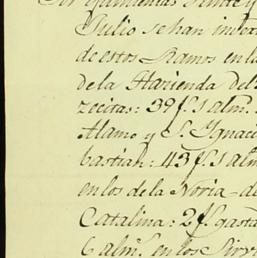 Por quinientas veinte y
Julio se han inver
de estos Ramos en la
de la Hacienda del
zecitas: 39 f.s alm.
Alamo y S. Ignaci
bastian: 43 f.s alm
en los de la Noria de
Catalina: 2 f.s gasta
6 alm.s en los Sirv